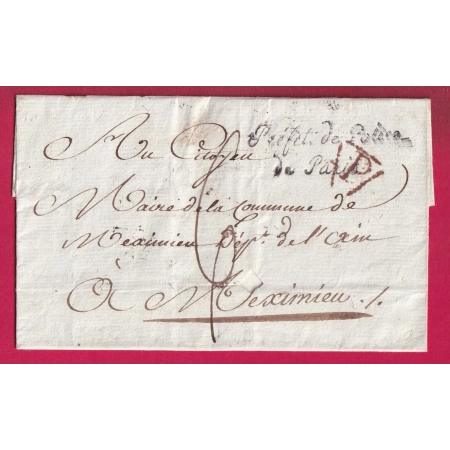 Préfet. de Police
de Paris
P
Au Citoyen
Maire de la Commune de
Meximieu Dép.t de l'Ain
à Meximieu ./.